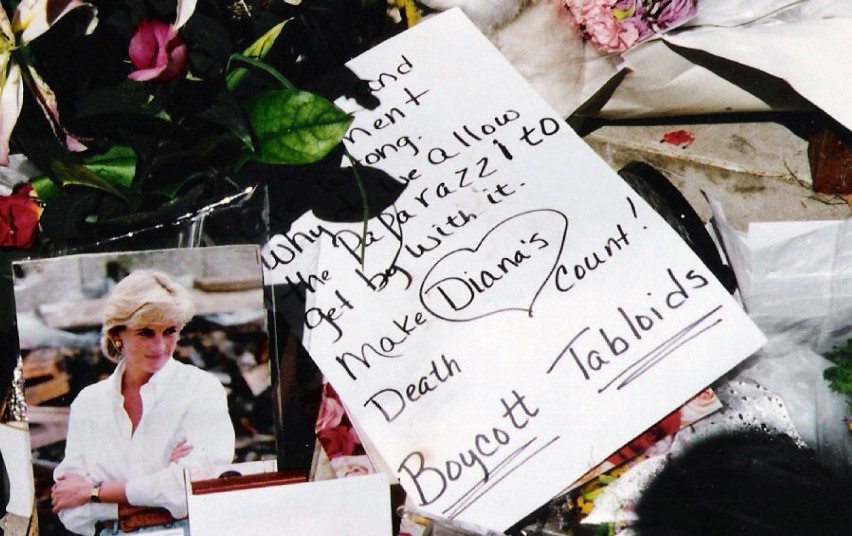 and
ment
Why do we allow
the Paparazzi to
get by with it.
Make Diana's
Death count!
Boycott Tabloids